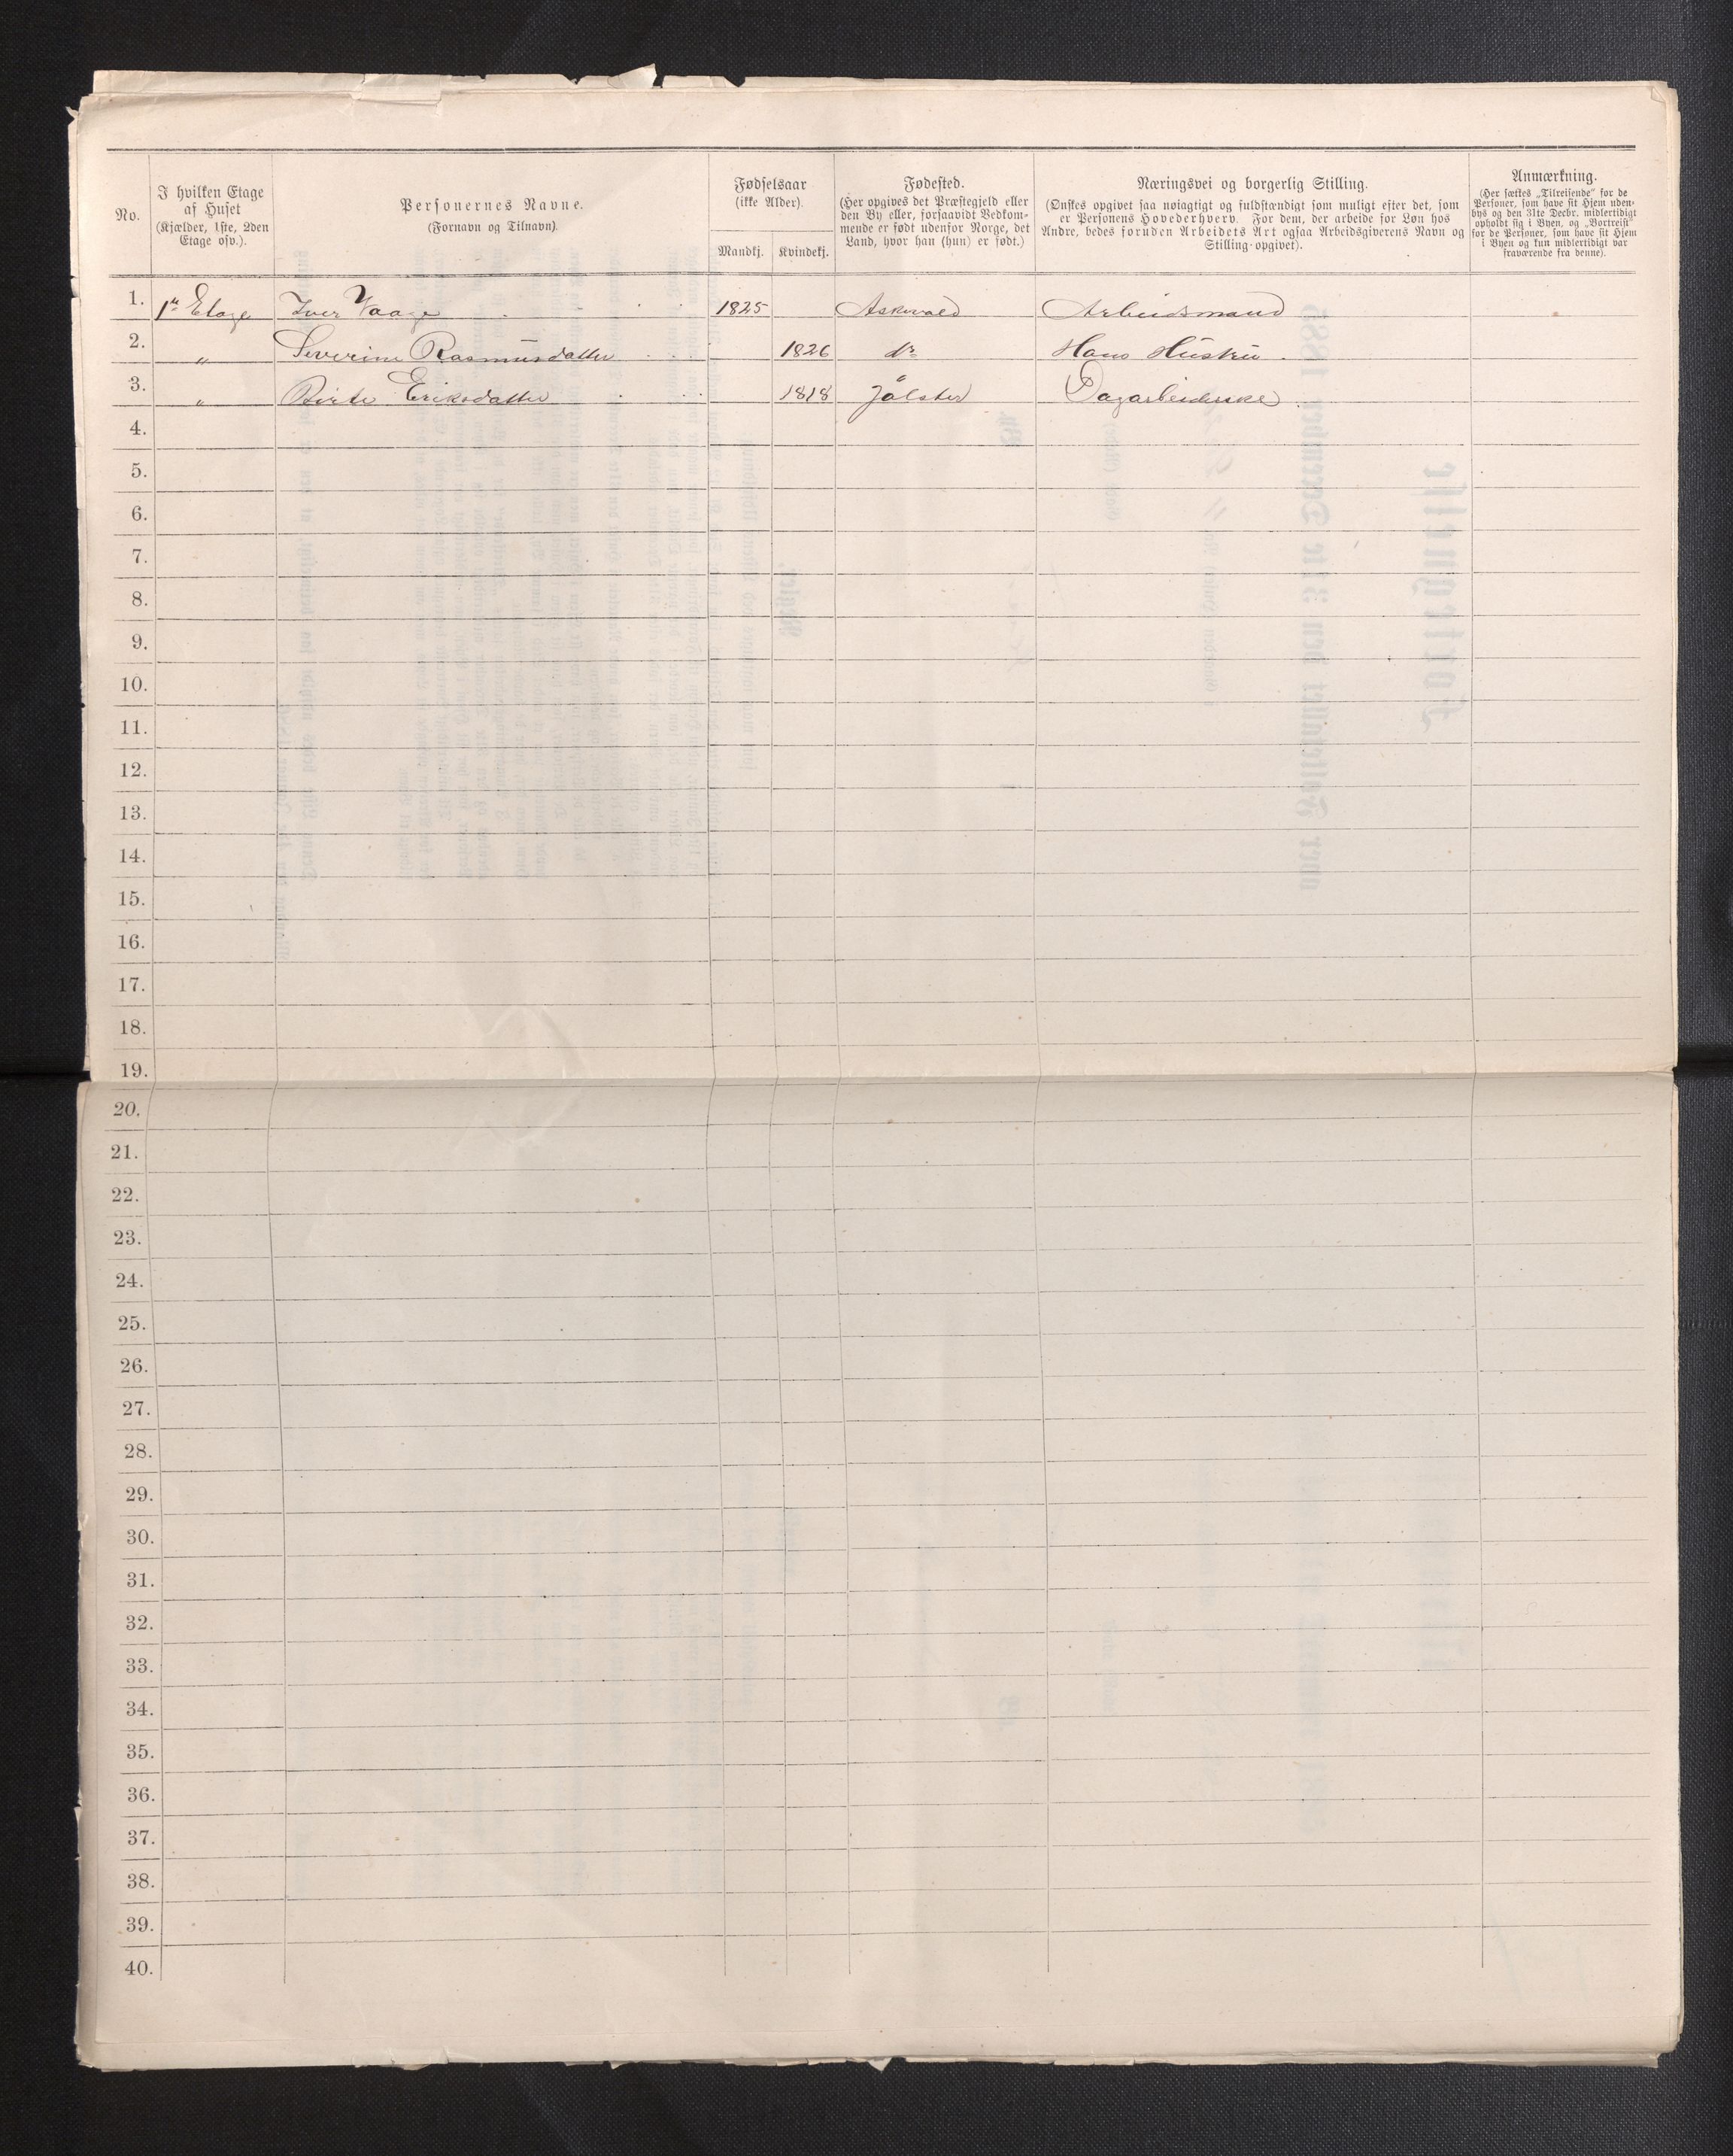 No.
I hvilken Etage
af Huset
(Kjælder, 1ste, 2den
Etage osv.).
Personernes Navne.
(Fornavn og Tilnavn).
Fødselsaar
(ikke Alder).
Mandkj. Kvindekj.
Fødested.
(Her opgives det Præstegjeld eller
den By eller, forsaavidt Vedkom-
mende er født udenfor Norge, det
Land, hvor han (hun) er født.)
Næringsvei og borgerlig Stilling.
(Ønskes opgivet saa nøiagtigt og fuldstændigt som muligt efter det, som
er Personens Hovederhverv. For dem, der arbeide for Løn hos
Andre, bedes foruden Arbeidets Art ogsaa Arbeidsgiverens Navn og
Stilling opgivet).
Anmærkning.
(Her sættes „Tilreisende” for de
Personer, som have sit Hjem uden-
bys og den 31te Decbr. midlertidigt
opholdt sig i Byen, og „Bortreist”
for de Personer, som have sit Hjem
i Byen og kun midlertidigt var
fraværende fra denne).
1. 1ste Etage Iver Vaage 1825 Askevold Arbeidsmand
2. " Severine Rasmusdatter 1826 do Hans Hustru
3. " Birte Eriksdatter 1818 Jølster Dagarbeiderske
4.
5.
6.
7.
8.
9.
10.
11.
12.
13.
14.
15.
16.
17.
18.
19.
20.
21.
22.
23.
24.
25.
26.
27.
28.
29.
30.
31.
32.
33.
34.
35.
36.
37.
38.
39.
40.